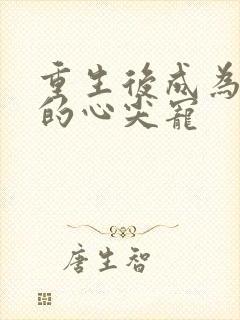 重生後成為
的心尖寵
唐生智